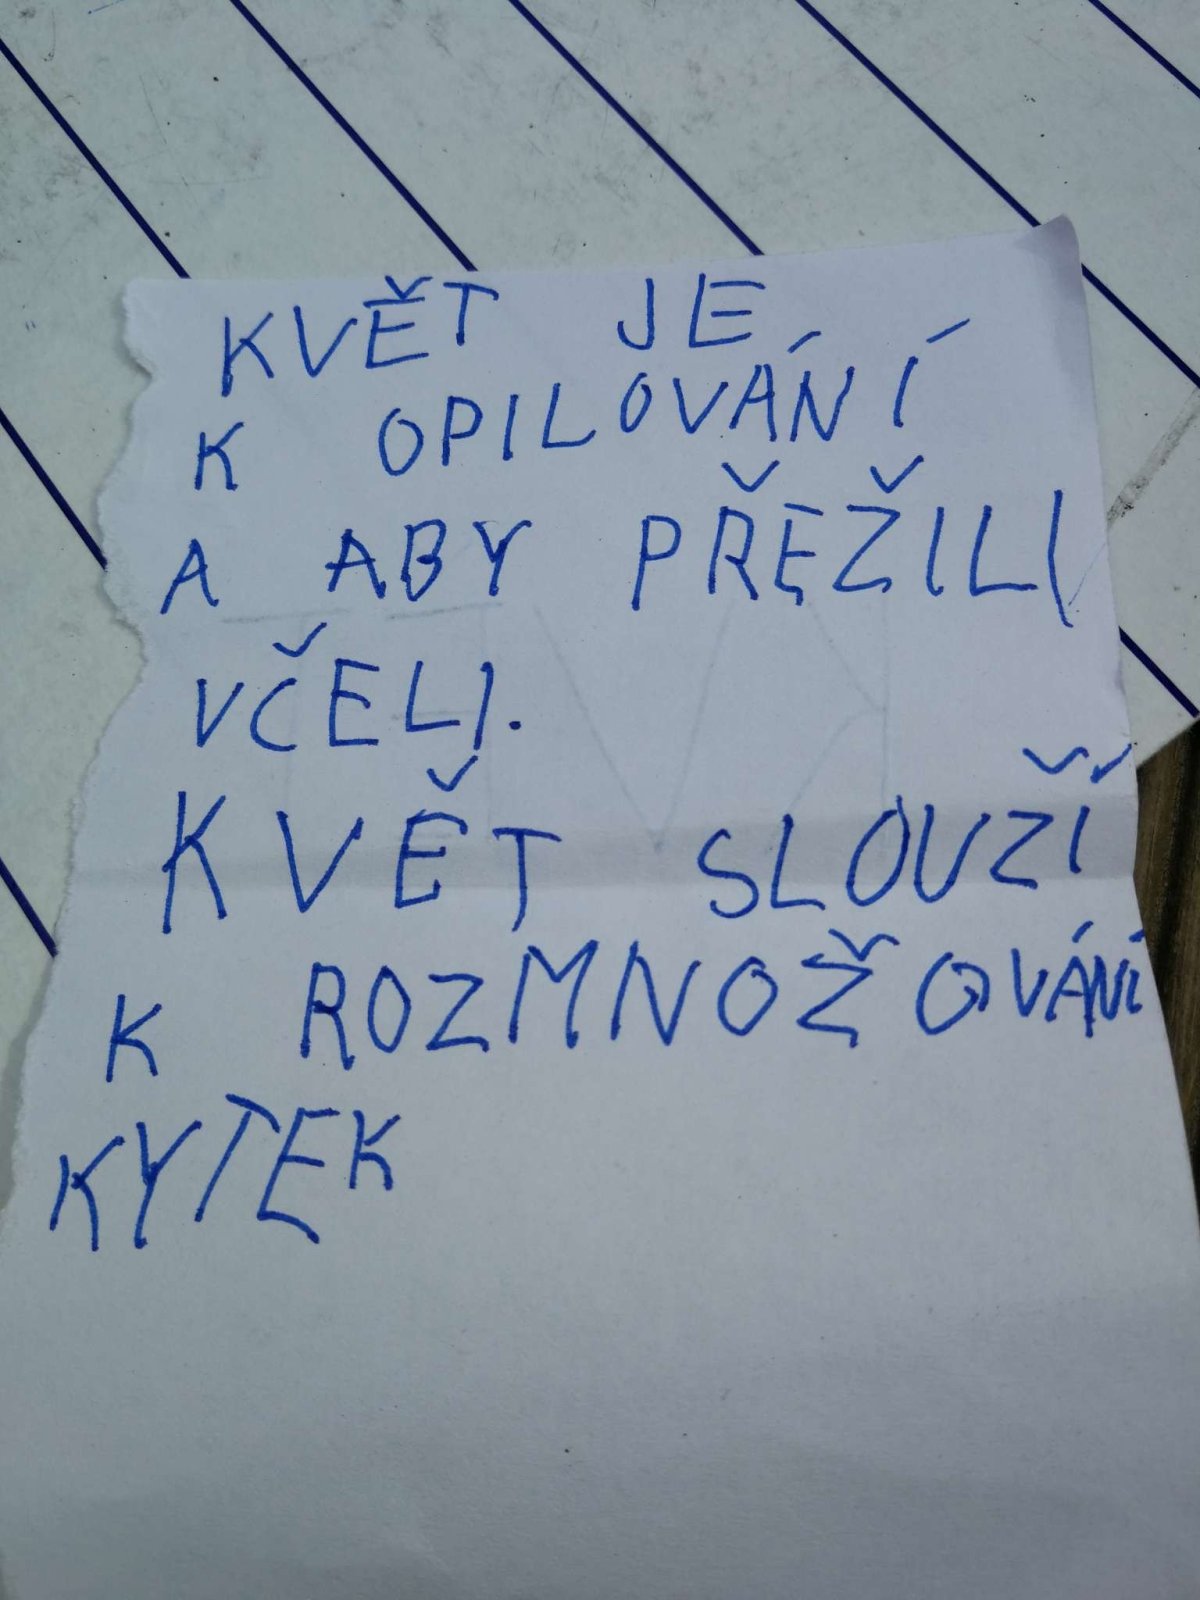 KVĚT JE
K OPILOVÁNÍ
A ABY PŘEŽILI
VČELI.
KVĚT SLOUŽÍ
K ROZMNOŽOVÁNÍ
KYTEK